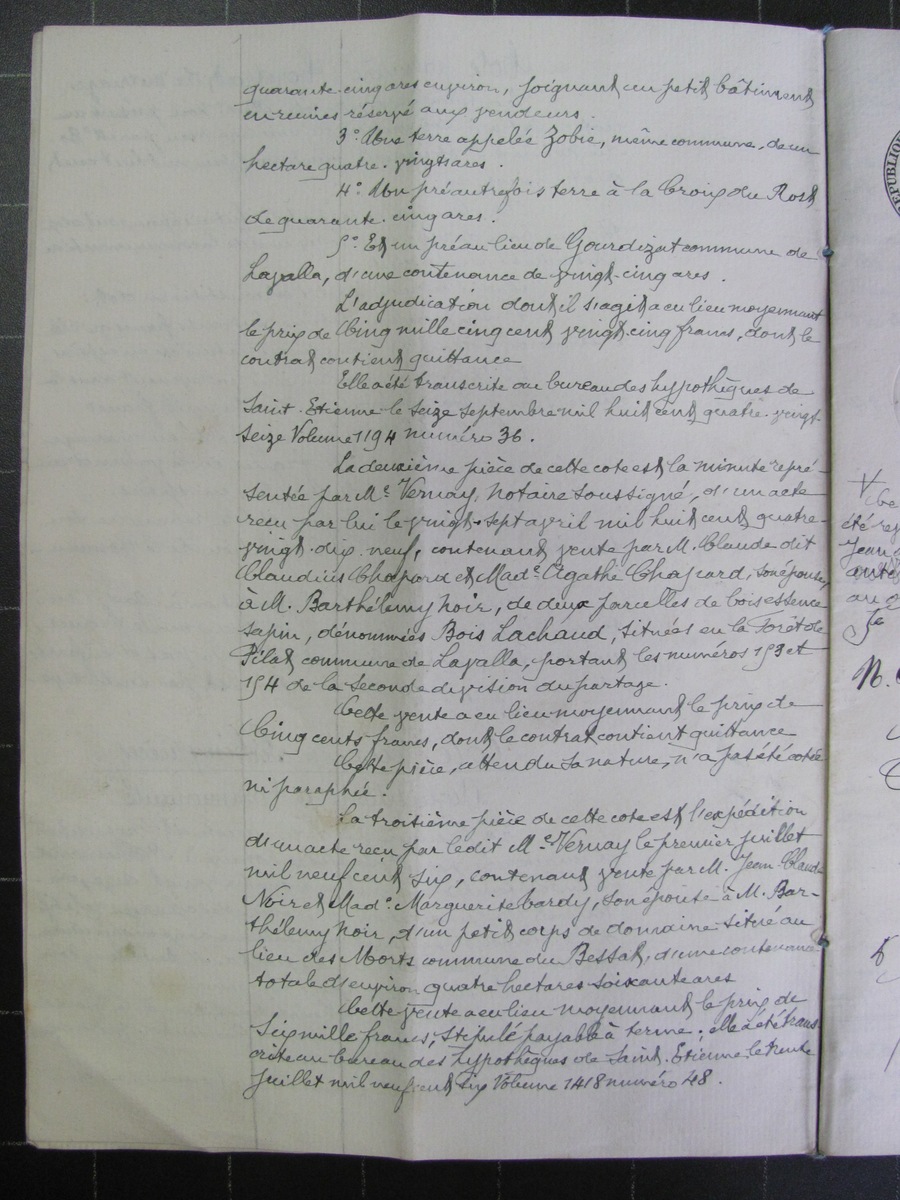 quarante-cinq ares environ, joignant un petit bâtiment
en ruines réservé aux vendeurs.
3° Une terre appelée Zobie, même commune, de un
hectare quatre-vingts ares.
4° Un pré autrefois terre à la Croix du Rost
de quarante-cinq ares.
5° Et un pré au lieu de Gourdizat commune de
Lavalla, d'une contenance de vingt-cinq ares.
L'adjudication dont il s'agit a eu lieu moyennant
le prix de Cinq mille cinq cent vingt-cinq francs, dont le
contrat contient quittance
Elle a été transcrite au bureau des hypothèques de
Saint-Etienne le seize septembre mil huit cent quatre-vingt-
seize Volume 1194 numéro 36.
La deuxième pièce de cette cote est la minute repré-
sentée par Me Vernay, notaire soussigné, d'un acte
reçu par lui le vingt-sept avril mil huit cent quatre-
vingt-dix-neuf, contenant vente par M. Claude dit
Claudius Chapard et Made Agathe Chapard, son épouse,
à M. Barthélemy Noir, de deux parcelles de bois essence
sapin, dénommées Bois Lachaud, situées en la Forêt de
Pilat commune de Lavalla, portant les numéros 153 et
154 de la seconde division du partage.
Cette vente a eu lieu moyennant le prix de
Cinq cents francs, dont le contrat contient quittance
Cette pièce, attendu sa nature, n'a pas été cotée
ni paraphée.
La troisième pièce de cette cote est l'expédition
d'un acte reçu par ledit Me Vernay le premier juillet
mil neuf cent six, contenant vente par M. Jean-Claude
Noir et Made Marguerite Cardy, son épouse à M. Bar-
thélemy Noir, d'un petit corps de domaine situé au
lieu des Morts commune du Bessat, d'une contenance
totale d'environ quatre hectares soixante ares
Cette vente a eu lieu moyennant le prix de
Six mille francs, stipulé payable à terme; elle a été trans-
crite au bureau des hypothèques de Saint-Etienne le trente
juillet mil neuf cent six Volume 1418 numéro 48.